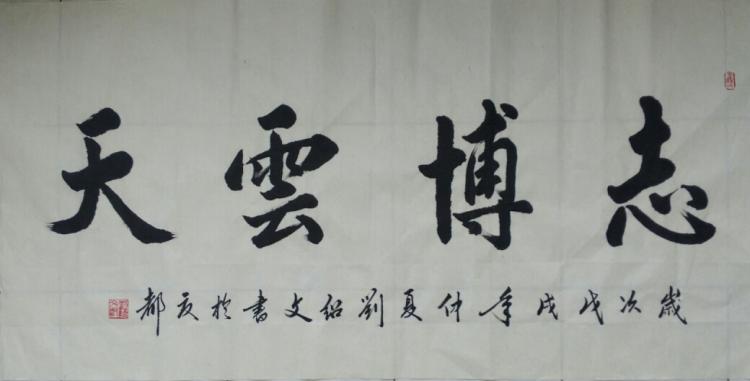 志博雲天
歲次戊戌年仲夏劉紹文書於友都